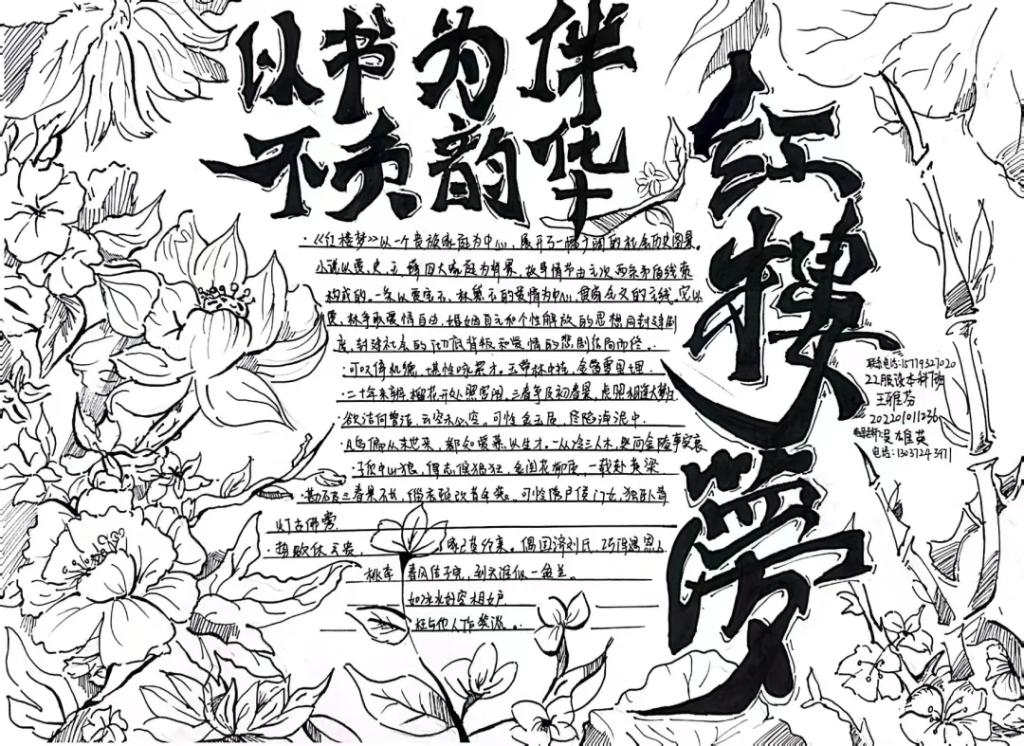 以书为伴
不负韵华
红楼梦
·《红楼梦》以一个贵族家庭为中心，展开了一幅广阔的社会历史图景。
小说以贾、史、王、薛四大家庭为背景，故事情节由主次两条矛盾线索
构成的。一条以贾宝玉、林黛玉的爱情为中心，贯穿全文的主线，它以
贾、林争取爱情自由、婚姻自主和个性解放的思想同封建制
度、封建社会的
爱情的悲剧
·可叹停机德，堪性咏絮才。玉带林中挂，金簪雪里埋
·二十年来辨 榴花开处照宫闱，三春争及初春景，虎兕相逢大梦归
·欲洁何曾洁，云空未必空。可怜金玉质，终陷淖泥中。
·凡鸟偏从末世来，都知爱慕此生才。一从二令三人木，哭向金陵事
·子 中山狼，得志
金闺花柳质，一载赴黄梁
·勘破三春景不长，缁衣
改昔年装。可怜绣户侯门女，独卧
灯古佛旁
·势败休云贵，
家
偶因济刘氏，巧
桃李
春风结子完，到头谁似一盆兰。
如冰水好空相妒
枉与他人作笑
联系电话:15719327020
22服设本科1班
王雅芬
202201011036
吴雄英
电话:13037243971